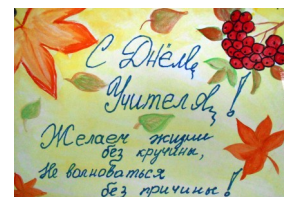 С Днём
Учителя!
Желаем жизни
без кручины,
Не волноваться
без причины!